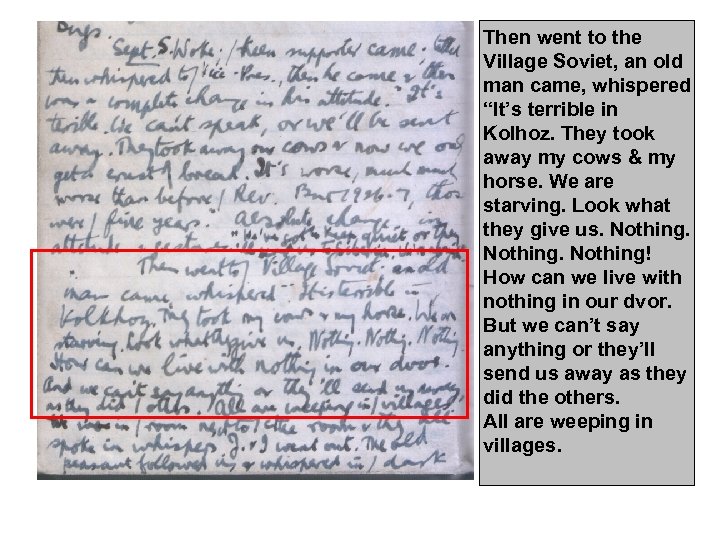 Sept. 5. Woke. / Keen supporter came.
then whispered to / Vice-Pres., then he came & there
was a complete change in his attitude. "It's
terrible. We can't speak, or we'll be sent
away. They took away our cows & now we only
get a crust of bread. It's worse, much, much
worse than before / Rev. But 1926-7, those
were / fine years." Absolute change in
attitude
"We've got to keep quiet or they
Then went to / Village Soviet. an old
man came, whispered "It is terrible in
Kolkhoz. They took my cows & my horse. We are
starving. Look what they give us. Nothing. Nothing. Nothing
How can we live with nothing in our dvor.
And we can't say anything or they'll send us away
as they did / others. All are weeping in / villages
in / room next to / the room & they all
spoke in whispers. J. & I went out. The old
peasant followed us & whispered in / dark
Then went to the
Village Soviet, an old
man came, whispered
“It’s terrible in
Kolhoz. They took
away my cows & my
horse. We are
starving. Look what
they give us. Nothing.
Nothing. Nothing!
How can we live with
nothing in our dvor.
But we can’t say
anything or they’ll
send us away as they
did the others.
All are weeping in
villages.